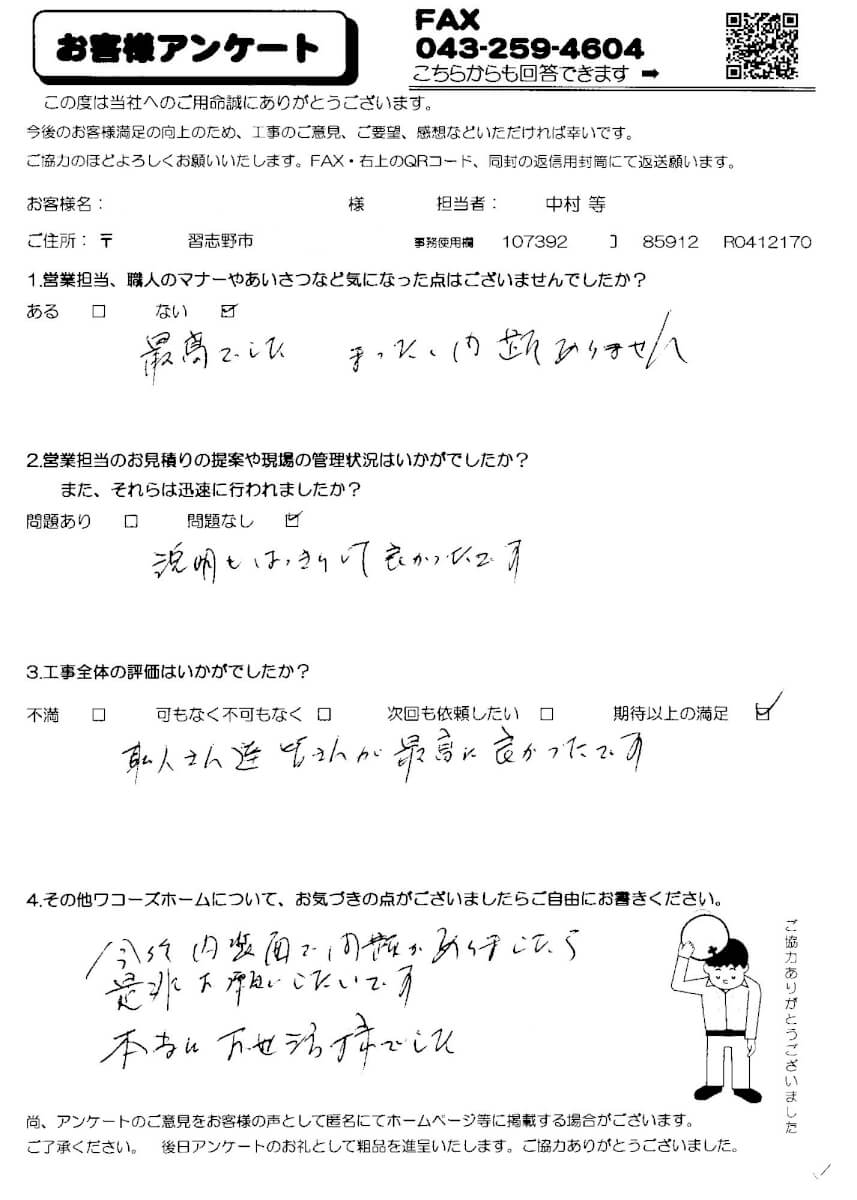 お客様アンケート
FAX
043-259-4604
こちらからも回答できます ➡
この度は当社へのご用命誠にありがとうございます。
今後のお客様満足の向上のため、工事のご意見、ご要望、感想などいただければ幸いです。
ご協力のほどよろしくお願いいたします。FAX・右上のQRコード、同封の返信用封筒にて返送願います。
お客様名： 様 担当者： 中村 等
ご住所：〒 習志野市 事務使用欄 107392 J 85912 R0412170
1.営業担当、職人のマナーやあいさつなど気になった点はございませんでしたか？
ある □ ない ☑
最高でした まったく問題ありません
2.営業担当のお見積りの提案や現場の管理状況はいかがでしたか？
また、それらは迅速に行われましたか？
問題あり □ 問題なし ☑
説明もはっきりして良かったです
3.工事全体の評価はいかがでしたか？
不満 □ 可もなく不可もなく □ 次回も依頼したい □ 期待以上の満足 ☑
職人さん達皆さんが最高に良かったです
4.その他ワコーズホームについて、お気づきの点がございましたらご自由にお書きください。
今後内装面で問題がありましたら
是非お願いしたいです
本当にお世話様でした
ご協力ありがとうございました
尚、アンケートのご意見をお客様の声として匿名にてホームページ等に掲載する場合がございます。
ご了承ください。 後日アンケートのお礼として粗品を進呈いたします。ご協力ありがとうございました。